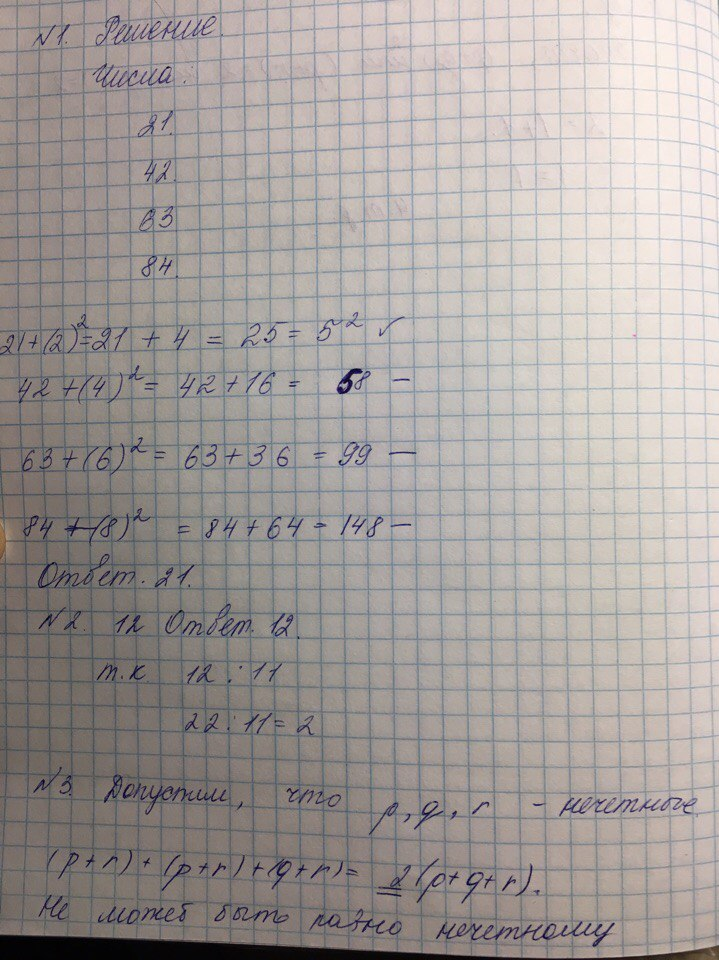 №1. Решение.
Числа:
21.
42.
63
84.
21+(2)²=21 + 4 = 25 = 5² ✓
42 +(4)² = 42+16 = 58 —
63+(6)² = 63+36 = 99 —
84 +(8)² = 84+64 = 148 —
Ответ. 21.
№2. 12 Ответ. 12.
т.к 12 : 11
22 : 11 = 2
№3. Допустим, что p, q, r - нечетные.
(p+r) + (p+r) + (q+r) = 2 (p+q+r).
Не может быть равно нечетному